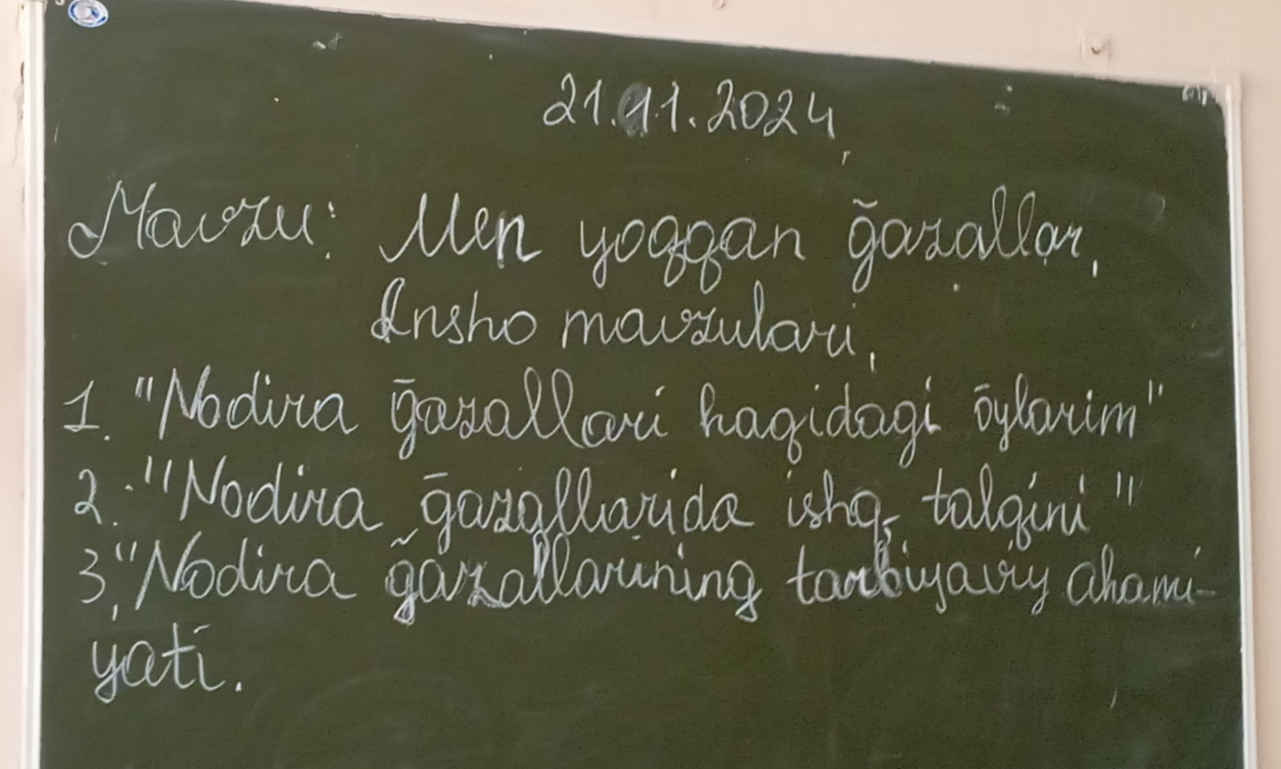 21.11.2024
Mavzu: Men yoqqan ğazallar.
Insho mavzulari.
1. "Nodira ḡazallari haqidagi ōylarim"
2. "Nodira ḡazallarida ishq talqini"
3. "Nodira ğazallarining tarbiyaviy ahami-
yati.